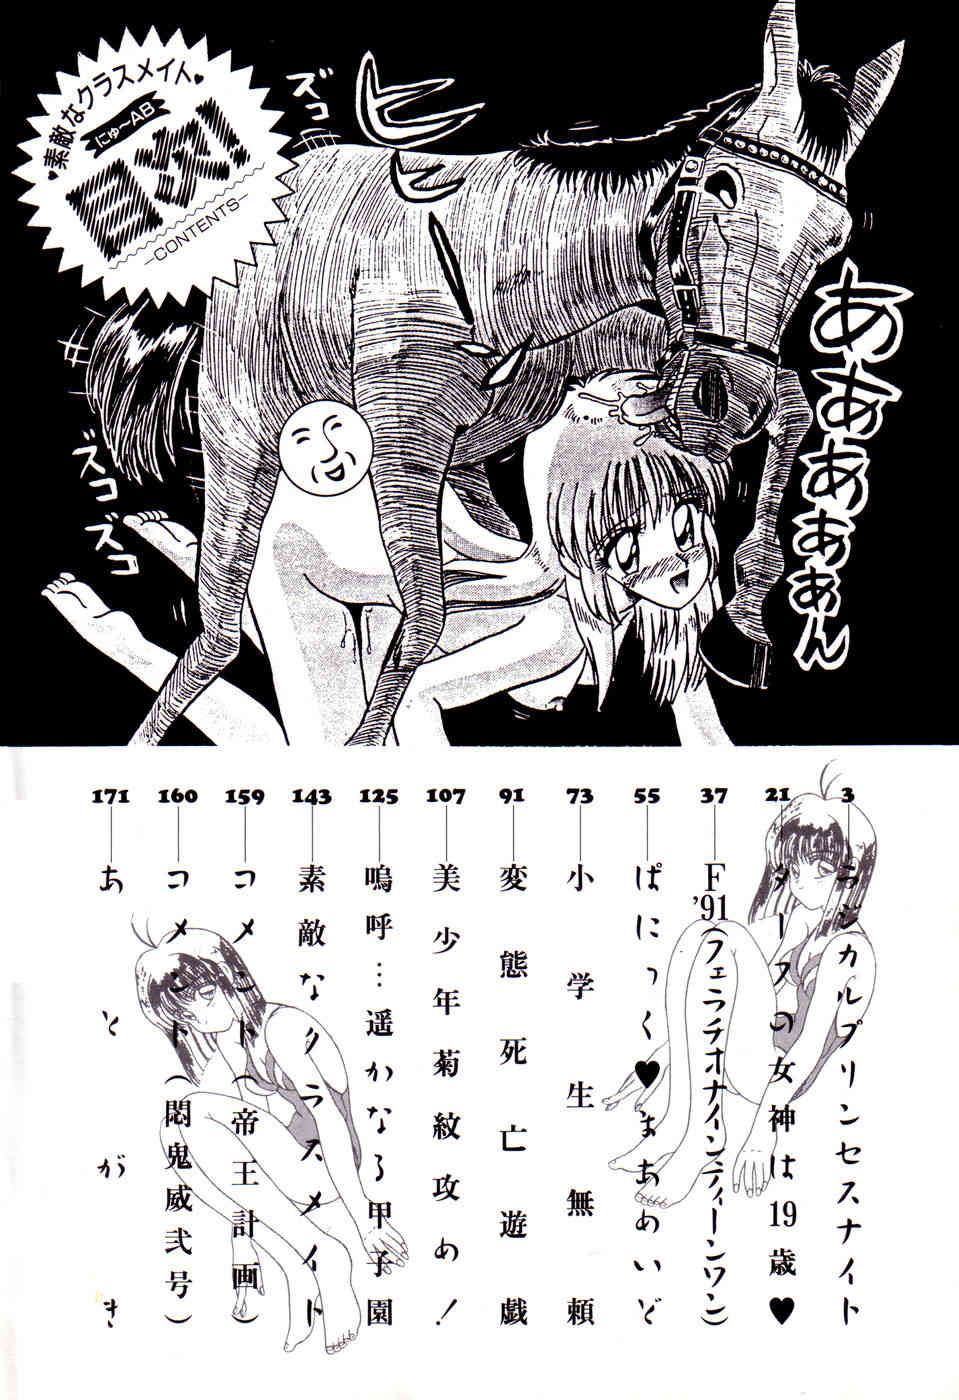 ♥素敵なクラスメイト♥
にゅーAB
目次!
—CONTENTS—
ズコ
ヒヒーン
ああああぁん
ズコズコ
3 ラジカルプリンセスナイト
21 ターフの女神は19歳♥
37 F'91(フェラチオナインティーンワン)
55 ぱにっく♥まあめいど
73 小学生無頼
91 変態死亡遊戯
107 美少年菊紋攻め!
125 嗚呼…遥かなる甲子園
143 素敵なクラスメイト
159 コメント(帝王計画)
160 コメント(悶鬼威弐号)
171 あとがき